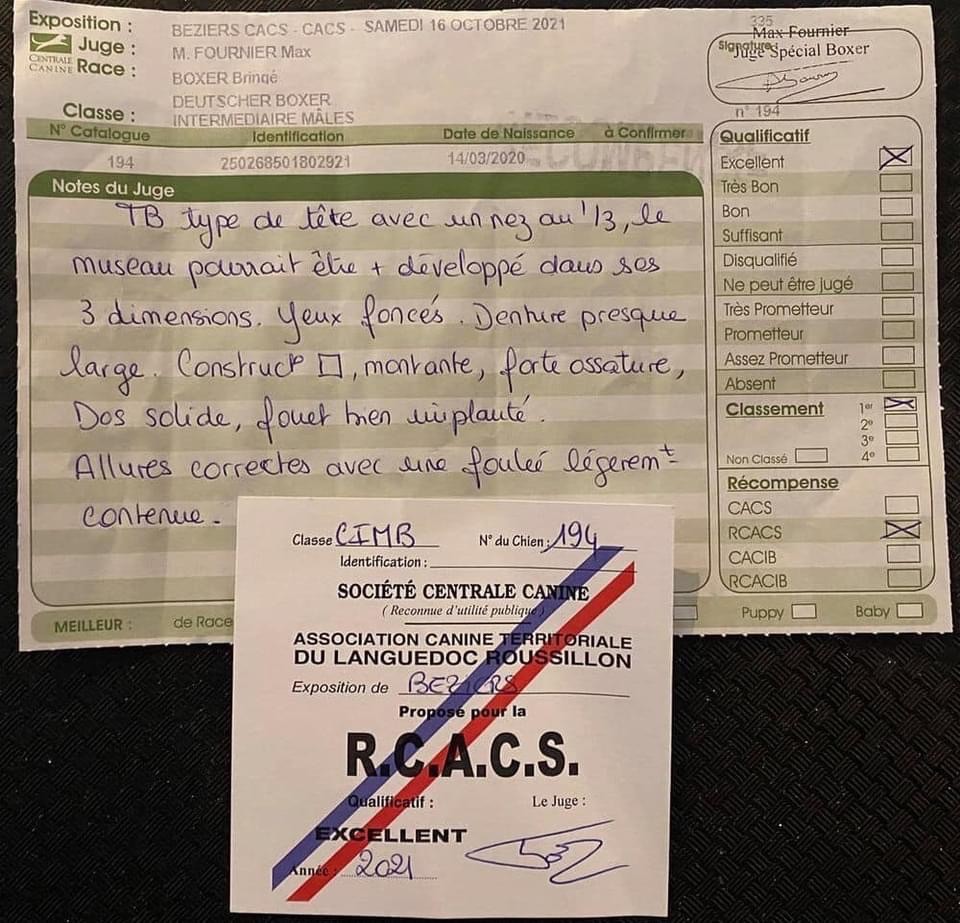 Exposition : BEZIERS CACS - CACS - SAMEDI 16 OCTOBRE 2021
Juge : M. FOURNIER Max
CENTRALE CANINE
Race : BOXER Bringé
DEUTSCHER BOXER
Classe : INTERMEDIAIRE MÂLES
335
Max Fournier
Signature:
Juge Spécial Boxer
n° 194
N° Catalogue Identification Date de Naissance à Confirmer
194 250268501802921 14/03/2020
Notes du Juge
TB type de tête avec un nez au 1/3, le
museau pourrait être + développé dans ses
3 dimensions. Yeux foncés. Denture presque
large. Construct° □, montante, forte ossature,
Dos solide, fouet bien implanté.
Allures correctes avec une foulée légerem^t
contenue.
Qualificatif
Excellent
Très Bon
Bon
Suffisant
Disqualifié
Ne peut être jugé
Très Prometteur
Prometteur
Assez Prometteur
Absent
Classement 1er
2e
3e
Non Classé 4e
Récompense
CACS
RCACS
CACIB
RCACIB
MEILLEUR : de Race Puppy Baby
Classe CIMB N° du Chien : 194
Identification :
SOCIÉTÉ CENTRALE CANINE
( Reconnue d'utilité publique )
ASSOCIATION CANINE TERRITORIALE
DU LANGUEDOC ROUSSILLON
Exposition de BEZIERS
Proposé pour la
R.C.A.C.S.
Qualificatif : Le Juge :
EXCELLENT
Année : 2021